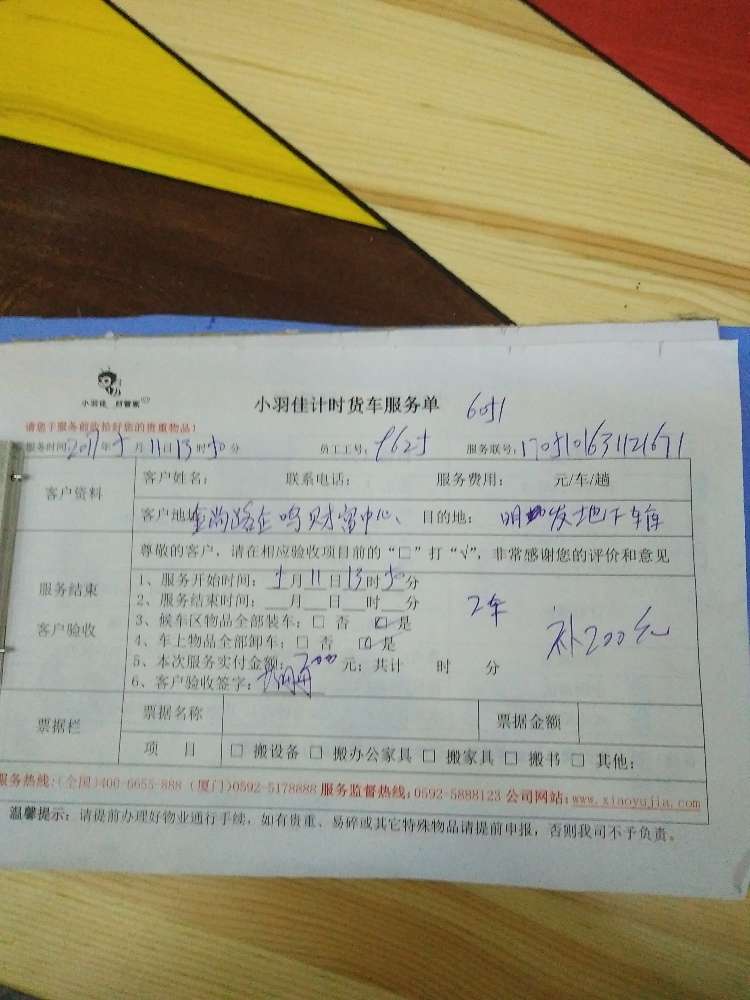 小羽佳 好管家
小羽佳计时货车服务单 6051
请您于服务前收拾好您的贵重物品!
服务时间:2017年5月11日13时50分 员工工号:9625 服务联号:170510631121671
客户资料
客户姓名: 联系电话: 服务费用: 元/车/趟
客户地址:金尚路企鸣财富中心、 目的地: 明发地下车库
服务结束
客户验收
尊敬的客户,请在相应验收项目前的“□”打“√”,非常感谢您的评价和意见
1、服务开始时间:5月11日13时50分
2、服务结束时间:___月___日___时___分
3、候车区物品全部装车:□ 否 ☑是
4、车上物品全部卸车:□ 否 ☑是
5、本次服务实付金额: 元;共计 时 分
6、客户验收签字:
2车
补200元
票据栏
票据名称 票据金额
项 目 □ 搬设备 □ 搬办公家具 □ 搬家具 □ 搬书 □ 其他:
服务热线:(全国)400-6655-888 (厦门)0592-5178888 服务监督热线:0592-5888123 公司网站:www.xiaoyujia.com
温馨提示:请提前办理好物业通行手续,如有贵重、易碎或其它特殊物品请提前申报,否则我司不予负责。